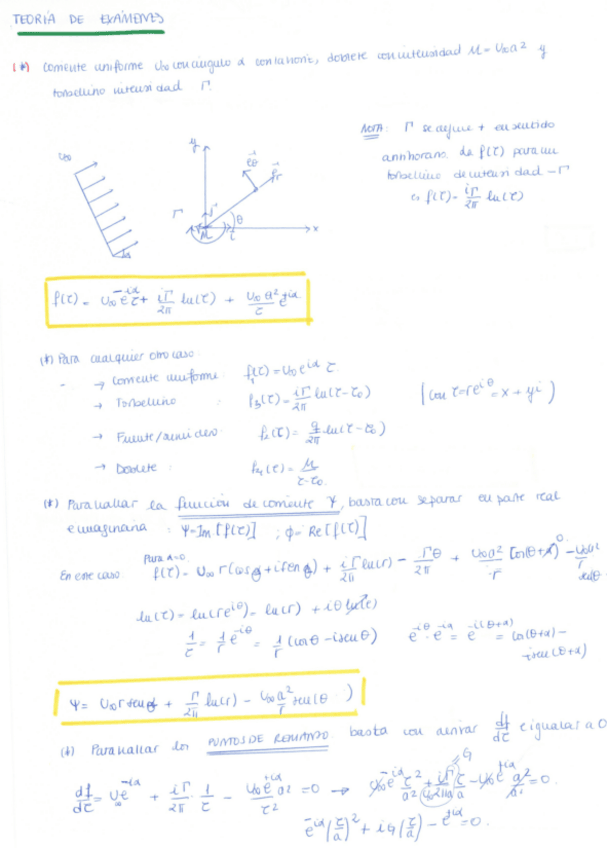 TEORÍA DE EXÁMENES
1*) Corriente uniforme U∞ con ángulo α con la horiz, doblete con intensidad M = U∞a² y
torbellino intensidad Γ.
NOTA: Γ se define + en sentido
antihorario de f(τ) para un
torbellino de intensidad -Γ
es f(τ) = iΓ/2π ln(τ)
U∞
y
eθ
er
Γ
θ
M
τ
x
f(τ) = U∞ e^-iα τ + iΓ/2π ln(τ) + U∞a²/τ e^iα
(*) Para cualquier otro caso:
→ Corriente uniforme: f₁(τ) = U∞ e^iα τ
→ Torbellino: f₃(τ) = iΓ/2π ln(τ-τ₀)
(con τ = re^iθ = x + yi)
→ Fuente/sumidero: f₂(τ) = q/2π ln(τ-τ₀)
→ Doblete: f₄(τ) = M/τ-τ₀
(*) Para hallar la función de corriente Ψ, basta con separar en parte real
e imaginaria: Ψ = Im[f(τ)] ; ϕ = Re[f(τ)]
Para α=0
En este caso f(τ) = U∞ r(cosθ + i senθ) + iΓ/2π ln(r) - Γθ/2π + U∞a²/r cos(θ+α) - U∞a²/r senθ
ln(τ) = ln(re^iθ) = ln(r) + iθ ln(e)
1/τ = 1/r e^-iθ = 1/r (cosθ - i senθ)
e^-iθ · e^-iα = e^-i(θ+α) = cos(θ+α) -
-i sen(θ+α)
Ψ = U∞ r senθ + Γ/2π ln(r) - U∞a²/r sen(θ )
(*) Para hallar los PUNTOS DE REMANSO basta con derivar df/dτ e igualar a 0
df/dτ = U∞ e^-iα + iΓ/2π · 1/τ - U∞ e^iα a²/τ² = 0 → U∞ e^-iα τ²/a² + iΓ/U∞2πa τ/a - U∞ e^iα a²/a² = 0.
G
e^-iα (τ/a)² + iG (τ/a) - e^iα = 0.